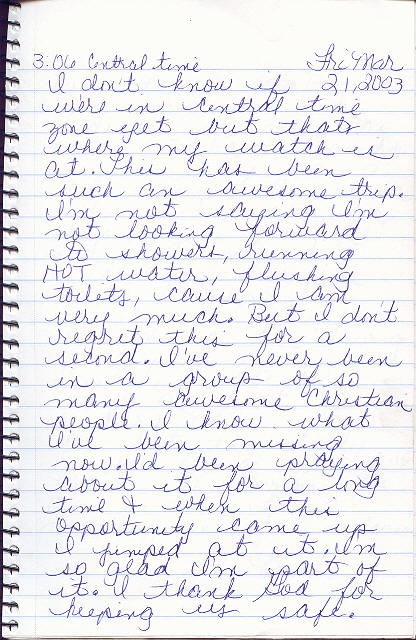 3:06 Central time Fri Mar
I don't know if 21, 2003
we're in central time
zone yet but that's
where my watch is
at. This has been
such an awesome trip.
I'm not saying I'm
not looking forward
to showers, running
HOT water, flushing
toilets, cause I am
very much. But I don't
regret this for a
second. I've never been
in a group of so
many awesome Christian
people. I know what
I've been missing
now. I'd been praying
about it for a long
time & when this
opportunity came up
I jumped at it. I'm
so glad I'm part of
it. I thank God for
keeping us safe.